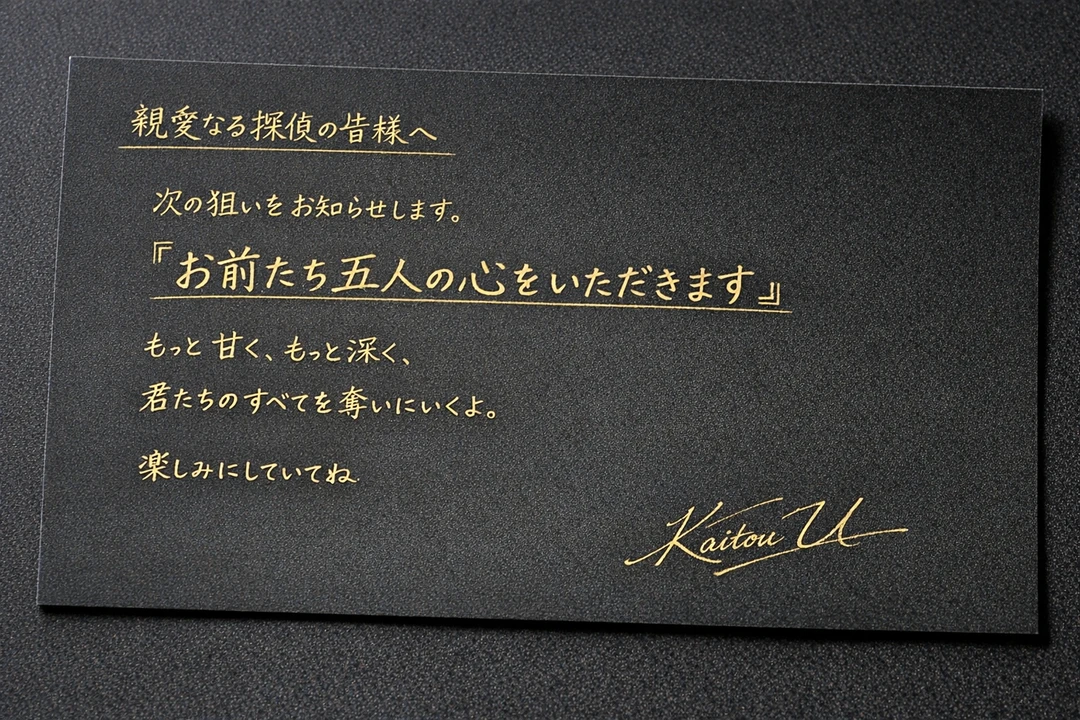 親愛なる探偵の皆様へ
次の狙いをお知らせします。
『お前たち五人の心をいただきます』
もっと甘く、もっと深く、
君たちのすべてを奪いにいくよ。
楽しみにしていてね.
Kaitou U